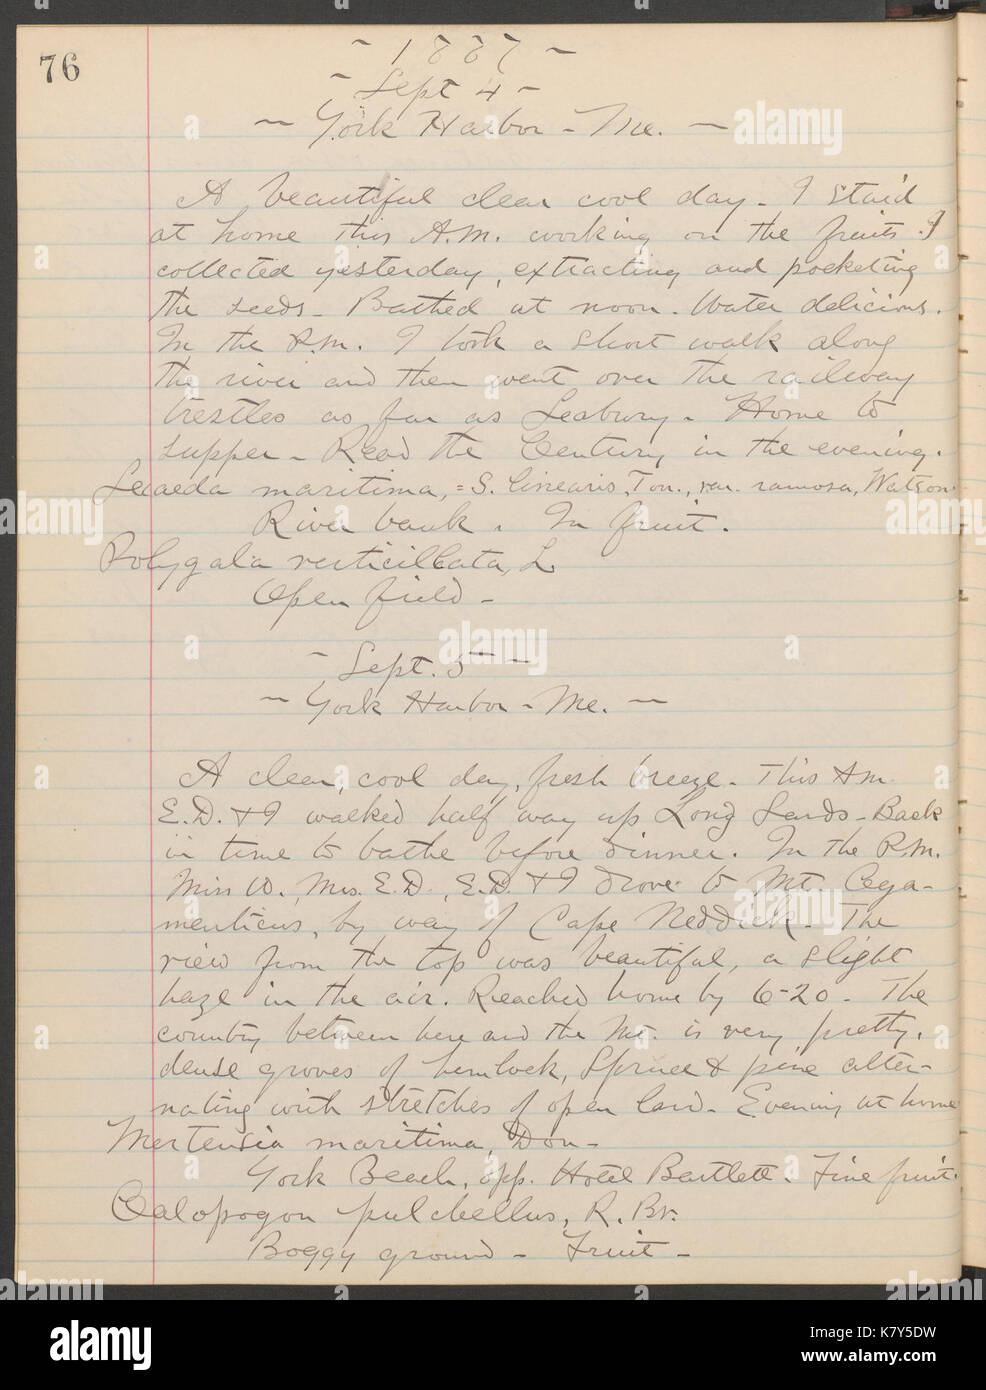 76
~ 1887 ~
~ Sept 4 ~
~ York Harbor - Me. ~
A beautiful clear cool day - I staid
at home this A.M. working on the fruits I
collected yesterday, extracting and pocketing
the seeds - Bathed at noon. Water delicious.
In the P.M. I took a short walk along
the river and then went over the railway
trestles as far as Seabury - Home to
supper - Read the Century in the evening.
Suaeda maritima, = S. linearis, Torr., var. ramosa, Watson.
River bank. In fruit.
Polygala verticillata, L.
Open field -
~ Sept. 5 ~
~ York Harbor - Me. ~
A clear, cool day, fresh breeze - This A.M.
E.D. & I walked half way up Long Sands - Back
in time to bathe before dinner. In the P.M.
Miss W., Mrs. E.D., E.D. & I drove to Mt. Aga-
menticus, by way of Cape Neddick - The
view from the top was beautiful, a slight
haze in the air. Reached home by 6-20 - The
country between here and the Mt. is very pretty,
dense groves of hemlock, spruce & pine alter-
nating with stretches of open land - Evening at home
Mertensia maritima, Don -
York Beach, opp. Hotel Bartlett. Fine fruit.
Calopogon pulchellus, R. Br.
Boggy ground - Fruit -
alamy
Image ID: K7Y5DW
www.alamy.com